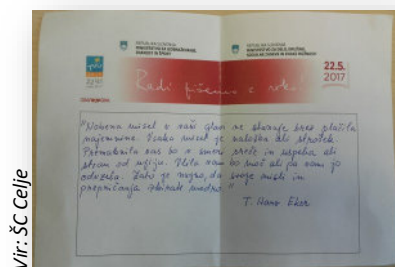 REPUBLIKA SLOVENIJA
MINISTRSTVO ZA IZOBRAŽEVANJE,
ZNANOST IN ŠPORT
REPUBLIKA SLOVENIJA
MINISTRSTVO ZA DELO, DRUŽINO,
SOCIALNE ZADEVE IN ENAKE MOŽNOSTI
22.5.
2017
Radi pišemo z roko!
"Nobena misel v naši glavi ne stanuje brez plačila
najemnine. Vsaka misel je naložba ali strošek.
Premaknila vas bo v smeri sreče in uspeha ali
stran od njiju. Vlila vam bo moč ali pa vam jo
odvzela. Zato je nujno, da svoje misli in
prepričanja izbirate modro."
T. Harv Eker
Vir: ŠC Celje